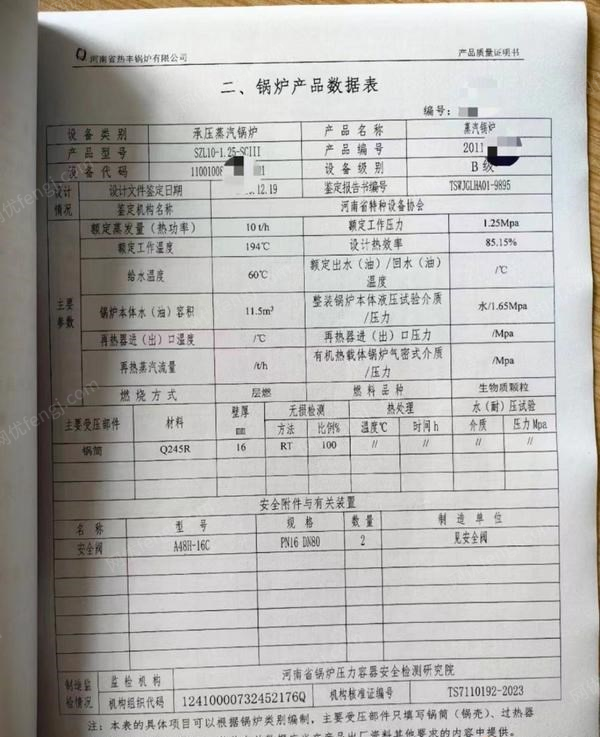 河南省热丰锅炉有限公司 产品质量证明书
二、锅炉产品数据表
编号：
设备类别 承压蒸汽锅炉 产品名称 蒸汽锅炉
产品型号 SZL10-1.25-SCIII 产品编号 2011
设备代码 1100100 设备级别 B级
设计情况 设计文件鉴定日期 12.19 鉴定报告书编号 TSWJGLHA01-9895
鉴定机构名称 河南省特种设备协会
主要参数 额定蒸发量（热功率） 10 t/h 额定工作压力 1.25Mpa
额定工作温度 194℃ 设计热效率 85.15%
给水温度 60℃ 额定出水（油）/回水（油）温度 /℃
锅炉本体水（油）容积 11.5m³ 整装锅炉本体液压试验介质/压力 水/1.65Mpa
再热器进（出）口温度 /℃ 再热器进（出）口压力 /Mpa
再热蒸汽流量 /t/h 有机热载体锅炉气密式介质/压力 /Mpa
燃烧方式 层燃 燃料品种 生物质颗粒
主要受压部件 材料 壁厚mm 无损检测 热处理 水（耐）压试验
方法 比例% 温度℃ 时间h 介质 压力Mpa
锅筒 Q245R 16 RT 100 // // // //
安全附件与有关装置
名称 型号 规格 数量 制造单位
安全阀 A48H-16C PN16 DN80 2 见安全阀
制造监检情况 监检机构 河南省锅炉压力容器安全检测研究院
机构组织代码 12410000732452176Q 机构核准证编号 TS7110192-2023
注：本表的具体项目可以根据锅炉类别编制，主要受压部件只填写锅筒（锅壳）、过热器